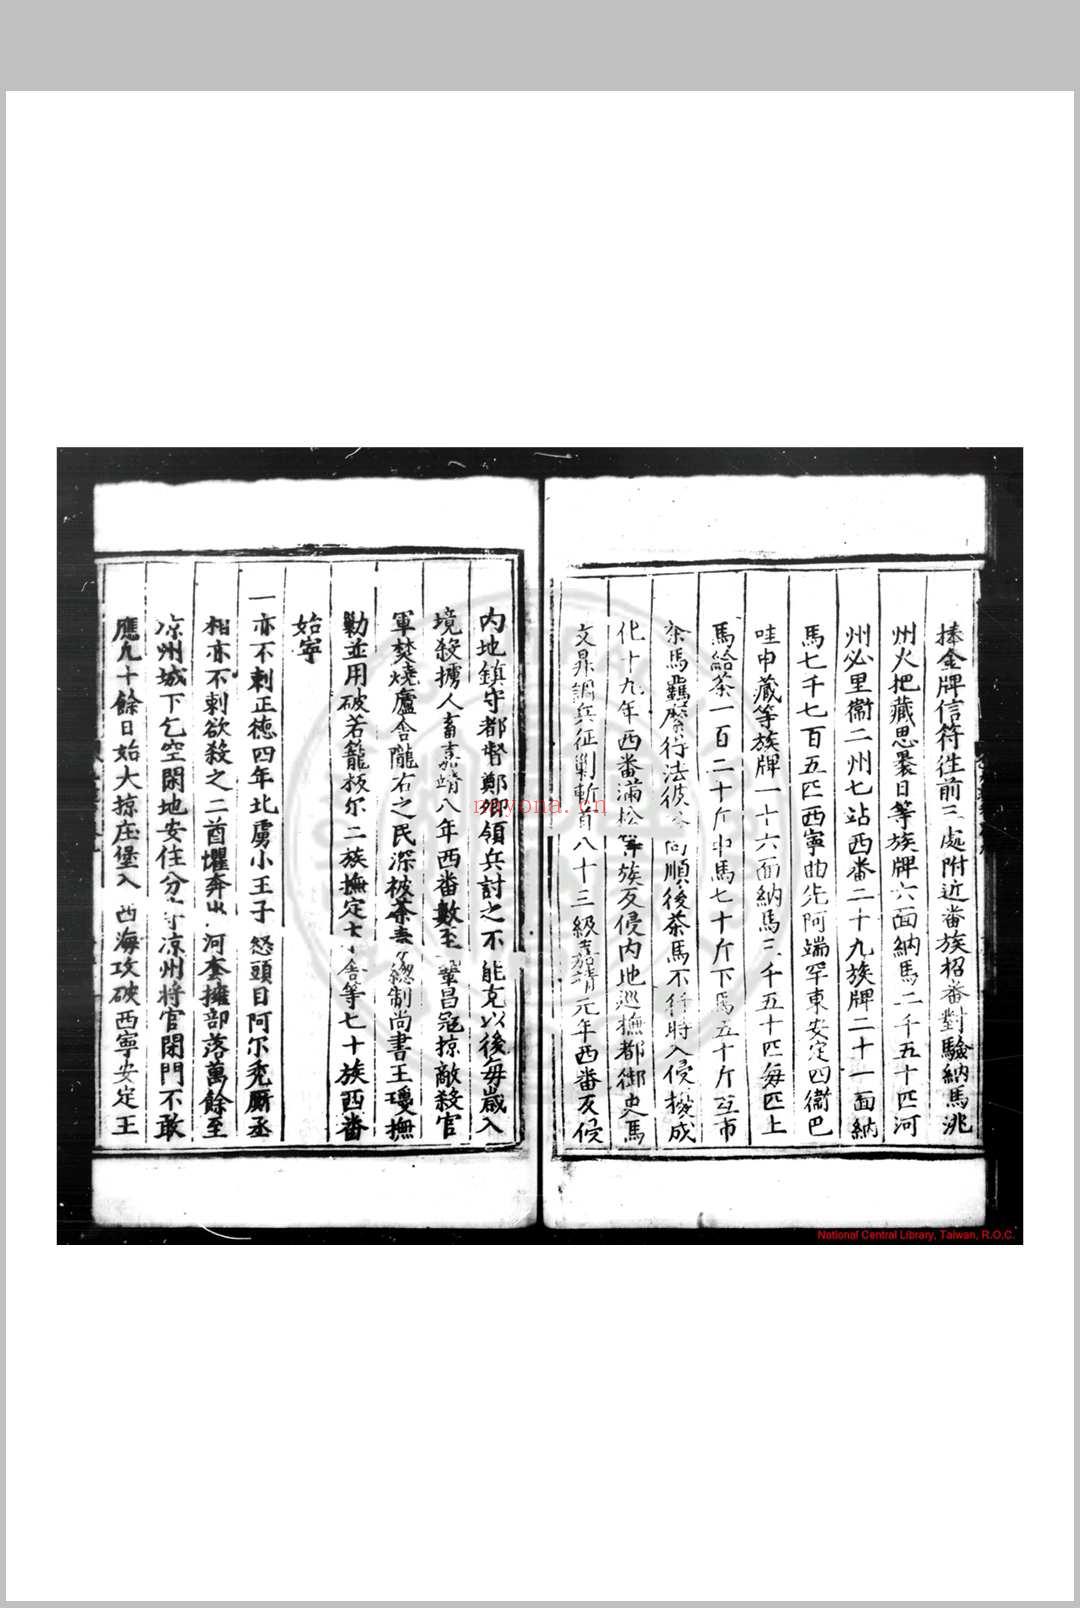 捧金牌信符徃前三處附近畨族招畨對驗納馬洮
州火把藏思曩日等族牌六面納馬二千五十匹河
州必里衞二州七站西畨二十九族牌二十一面納
馬七千七百五匹西寧曲先阿端罕東安定四衞巴
哇申藏等族牌一十六面納馬三千五十匹每匹上
馬給茶一百二十斤中馬七十斤下馬五十斤互市
茶馬羈縻行法彼 向順後茶馬不 時入侵擾成
化十九年西畨滿松等族反侵内地巡撫都御史馬
文昇調兵征剿斬首八十三級嘉靖元年西畨反侵
内地鎮守都督鄭卿領兵討之不能克以後每歲入
境殺擄人畜嘉靖八年西畨數至 鞏昌冦掠敵殺官
軍焚燒廬舍隴右之民深被荼毒 總制尚書王瓊撫
勦並用破若籠板尔二族撫定 舍等七十族西畨
始寧
一亦不剌正德四年北虜小王子 怒頭目阿尔禿厮丞
相亦不剌欲殺之二酋懼奔出 河套擁部落萬餘至
凉州城下乞空閑地安住分守凉州將官閉門不敢
應九十餘日始大掠庄堡入 西海攻破西寧安定王
nayona.cn
National Central Library, Taiwan, R.O.C.